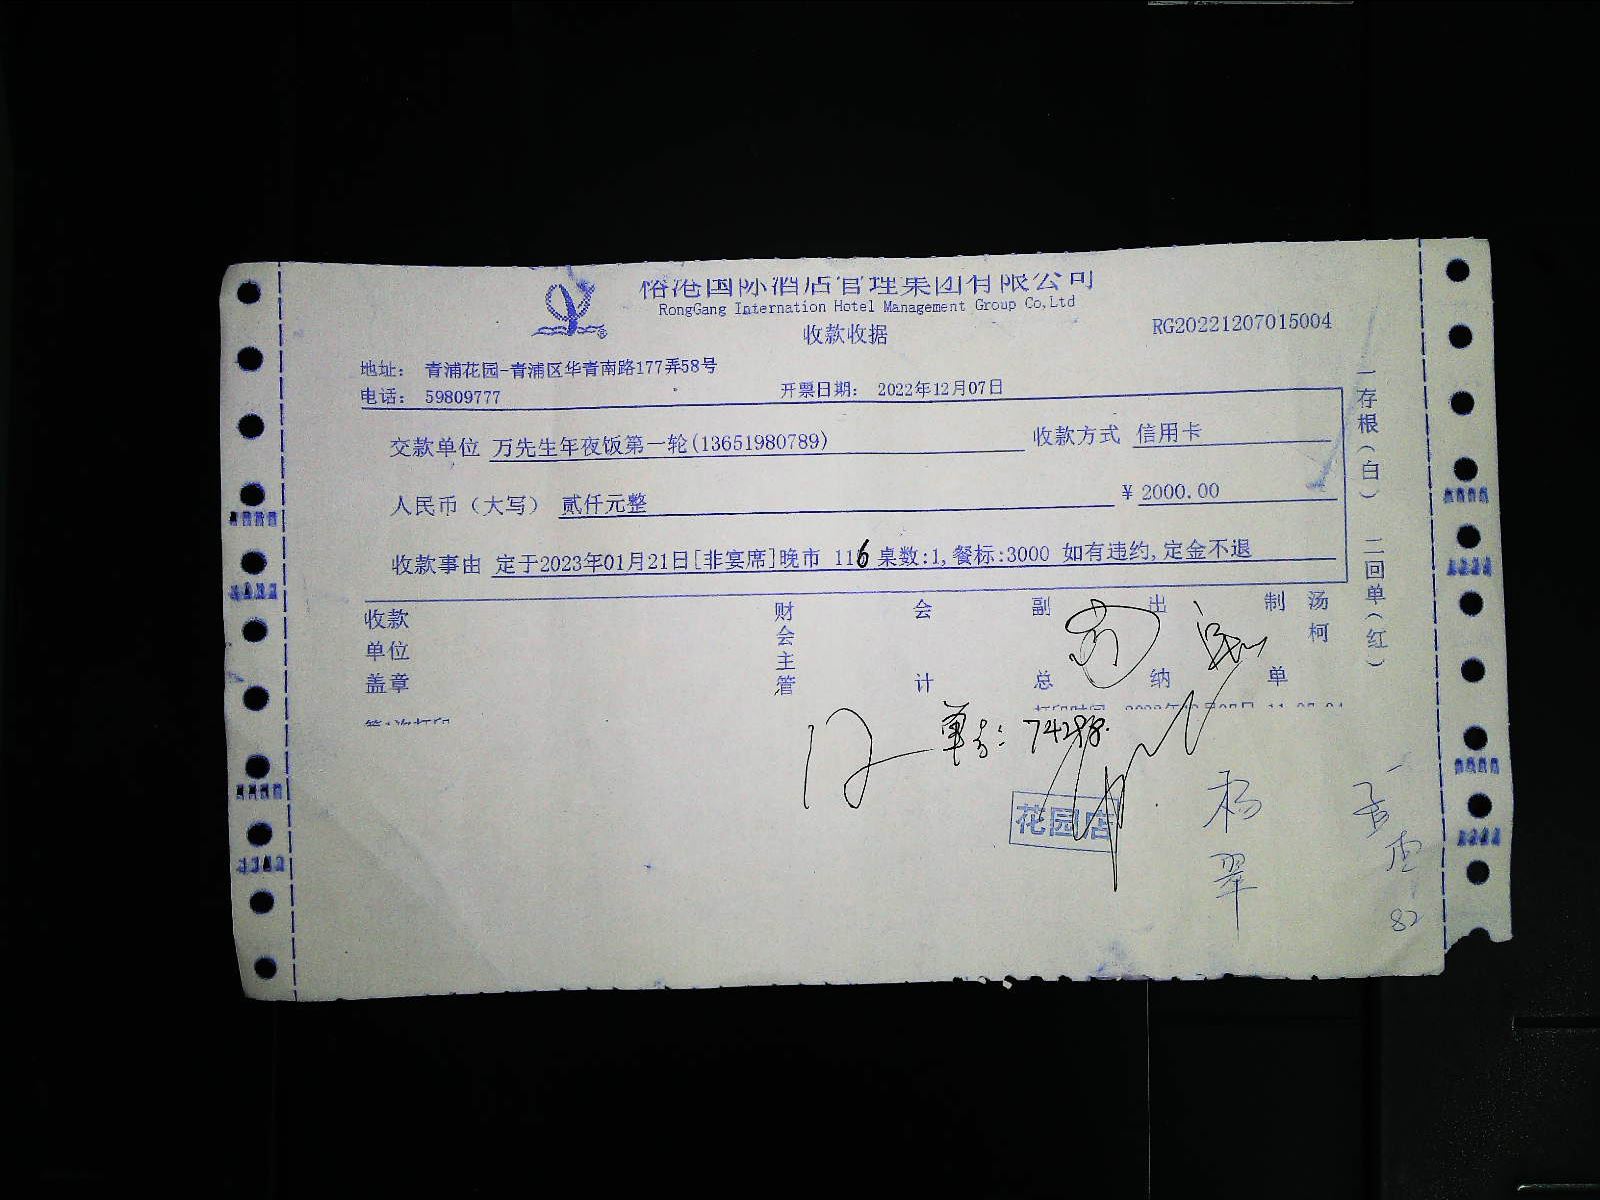 国际酒店管理集团有限公司
RongGang Internation Hotel Management Group Co,Ltd
收款收据
RG20221207015004
地址: 青浦花园-青浦区华青南路177弄58号
电话: 59809777
开票日期: 2022年12月07日
交款单位 万先生年夜饭第一轮(13651980789)
收款方式 信用卡
人民币(大写) 贰仟元整
¥ 2000.00
收款事由 定于2023年01月21日[非宴席]晚市 116 桌数:1,餐标:3000 如有违约,定金不退
收款单位盖章
财会主管
会计
副总
出纳
制单
汤柯
一存根(白) 二回单(红)
花园店
杨翠
82